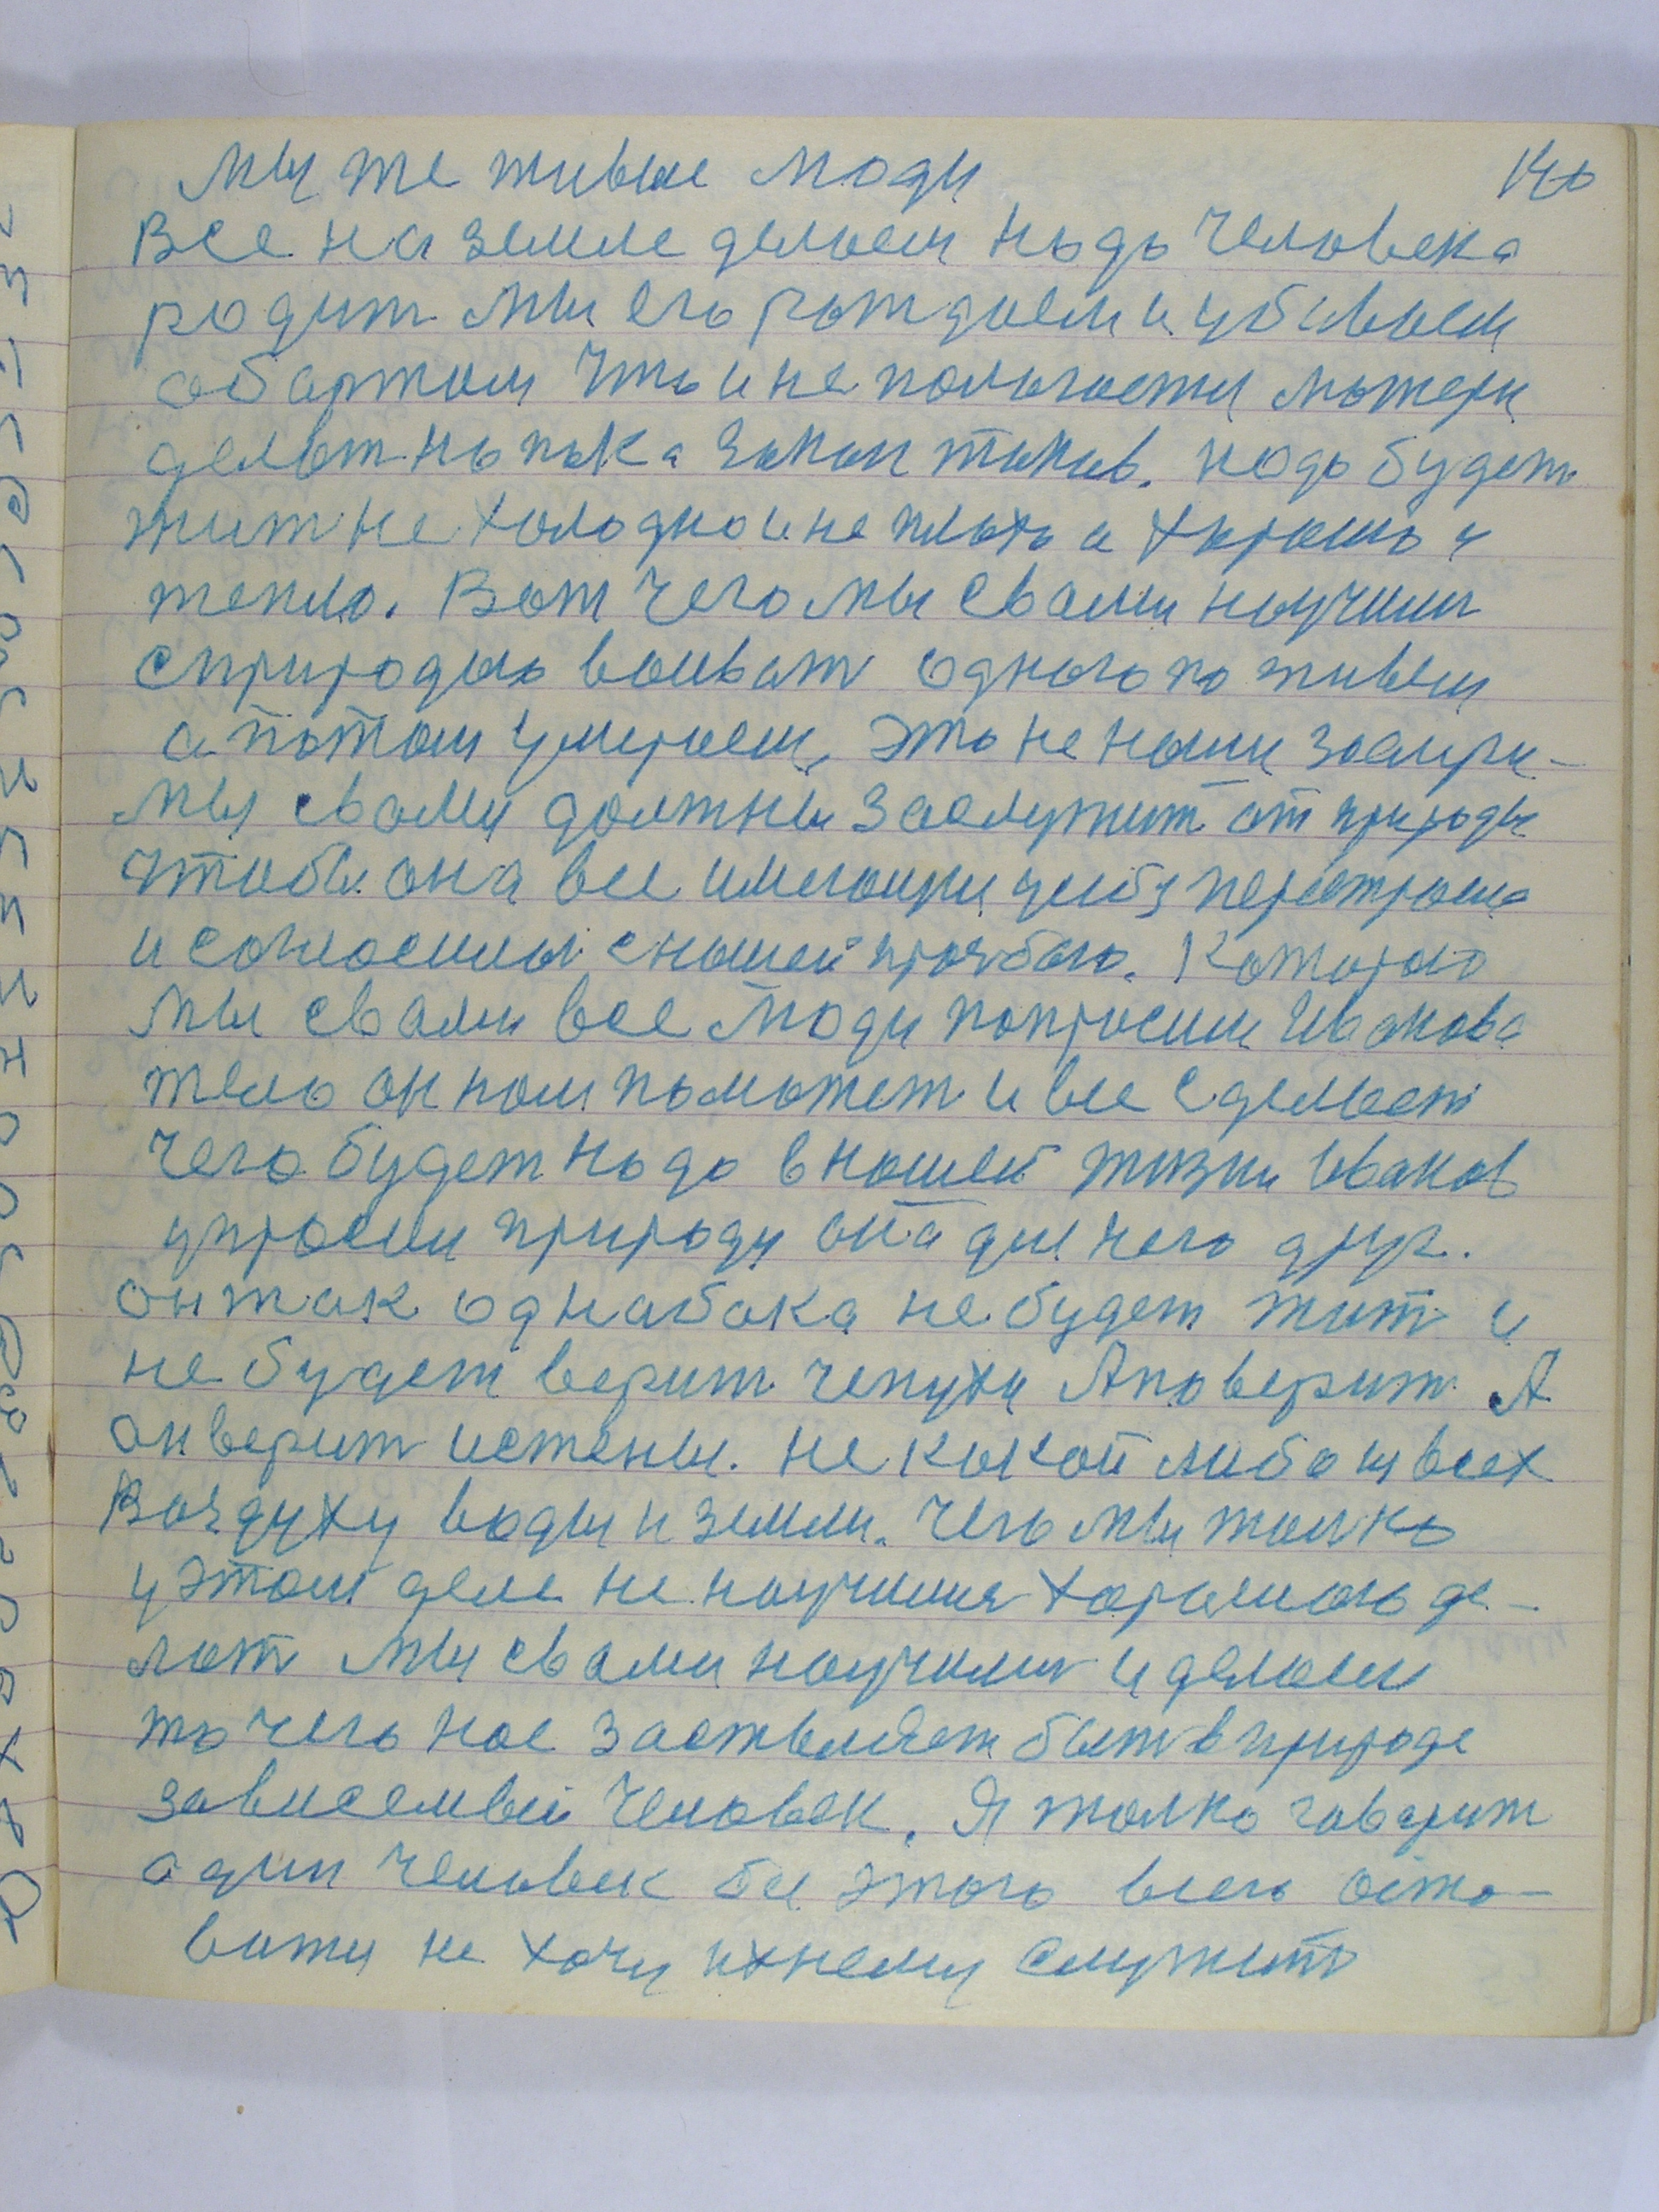 мы же живые люди 140
Все на земле делаем надо человека
родит мы его раждаем и убиваем
абартом что и не полагается матери
делат но пока закон таков. надо будет
жит не холодно и не плохо а харашо и
тепло. Вот чего мы свами научили
с природаю воиват одного поживем
а патом умираем, это не наши заслуги
мы свами должны заслужит от природы
чтобы она все имеющи усебя перестроила
и согласилась снашей прозбою. Которою
мы свами все люди попросим Иванова
тело он нам поможет и все сделает
чего будет надо внашей жизни Иванов
упросит природу она для него друг.
он так однабока не будет жит и
не будет верит чепухи Аповерит А
он верит истены. не какой либо из всех
Воздуху воды и земли. чего мы толко
уэтом деле не научимся харашого де-
лат мы свами научилис и делаем
то чего нас заставляет быт вприроде
зависемый человек. Я толко гаварит
адин человек бы этого всего оста-
вити не хочу ихнему служить